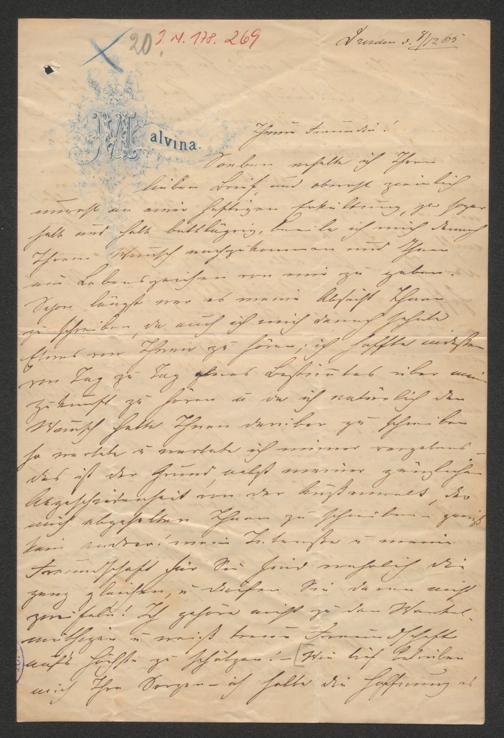 20. J.N. 178.269
Dresden d. 8/12 65
Malvina.
Theure Freundin!
Soeben erhalte ich Ihren
lieben Brief und obwohl ziemlich
unwohl an einer heftigen Erkältung, ja sogar
halb und halb bettlägrig, beeile ich mich dennoch
Ihrem Wunsch nachzukommen und Ihnen
ein Lebenszeichen von mir zu geben.
Schon längst war es meine Absicht Ihnen
zu schreiben, da auch ich mich danach sehnte
Etwas von Ihnen zu hören; ich hoffte indessen
von Tag zu Tag etwas Bestimmtes über meine
Zukunft zu hören u da ich natürlich den
Wunsch hatte Ihnen darüber zu schreiben
so wartete u wartete ich immer vergebens –
das ist der Grund, nebst meiner gänzlichen
Abgeschiedenheit von der Außenwelt, der
mich abgehalten Ihnen zu schreiben – gewiß
kein andrer! mein Interesse u meine
Freundschaft für Sie sind wahrlich die
ganz gleichen, u dürfen Sie daran nicht
zweifeln! Ich gehöre nicht zu den Wankel-
müthigen u weiß treue Freundschaft
aufs Höchste zu schätzen! – Wie tief betrüben
mich Ihre Sorgen – ich hatte die Hoffnung es